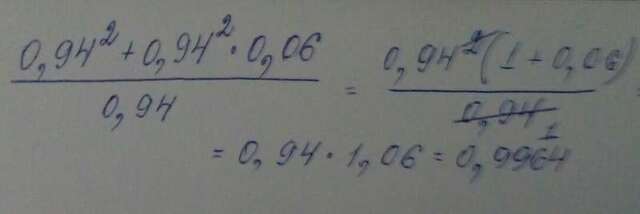 0,94² + 0,94² · 0,06 / 0,94 = 0,94²(1 + 0,06) / 0,94 =
1
= 0,94 · 1,06 = 0,9964